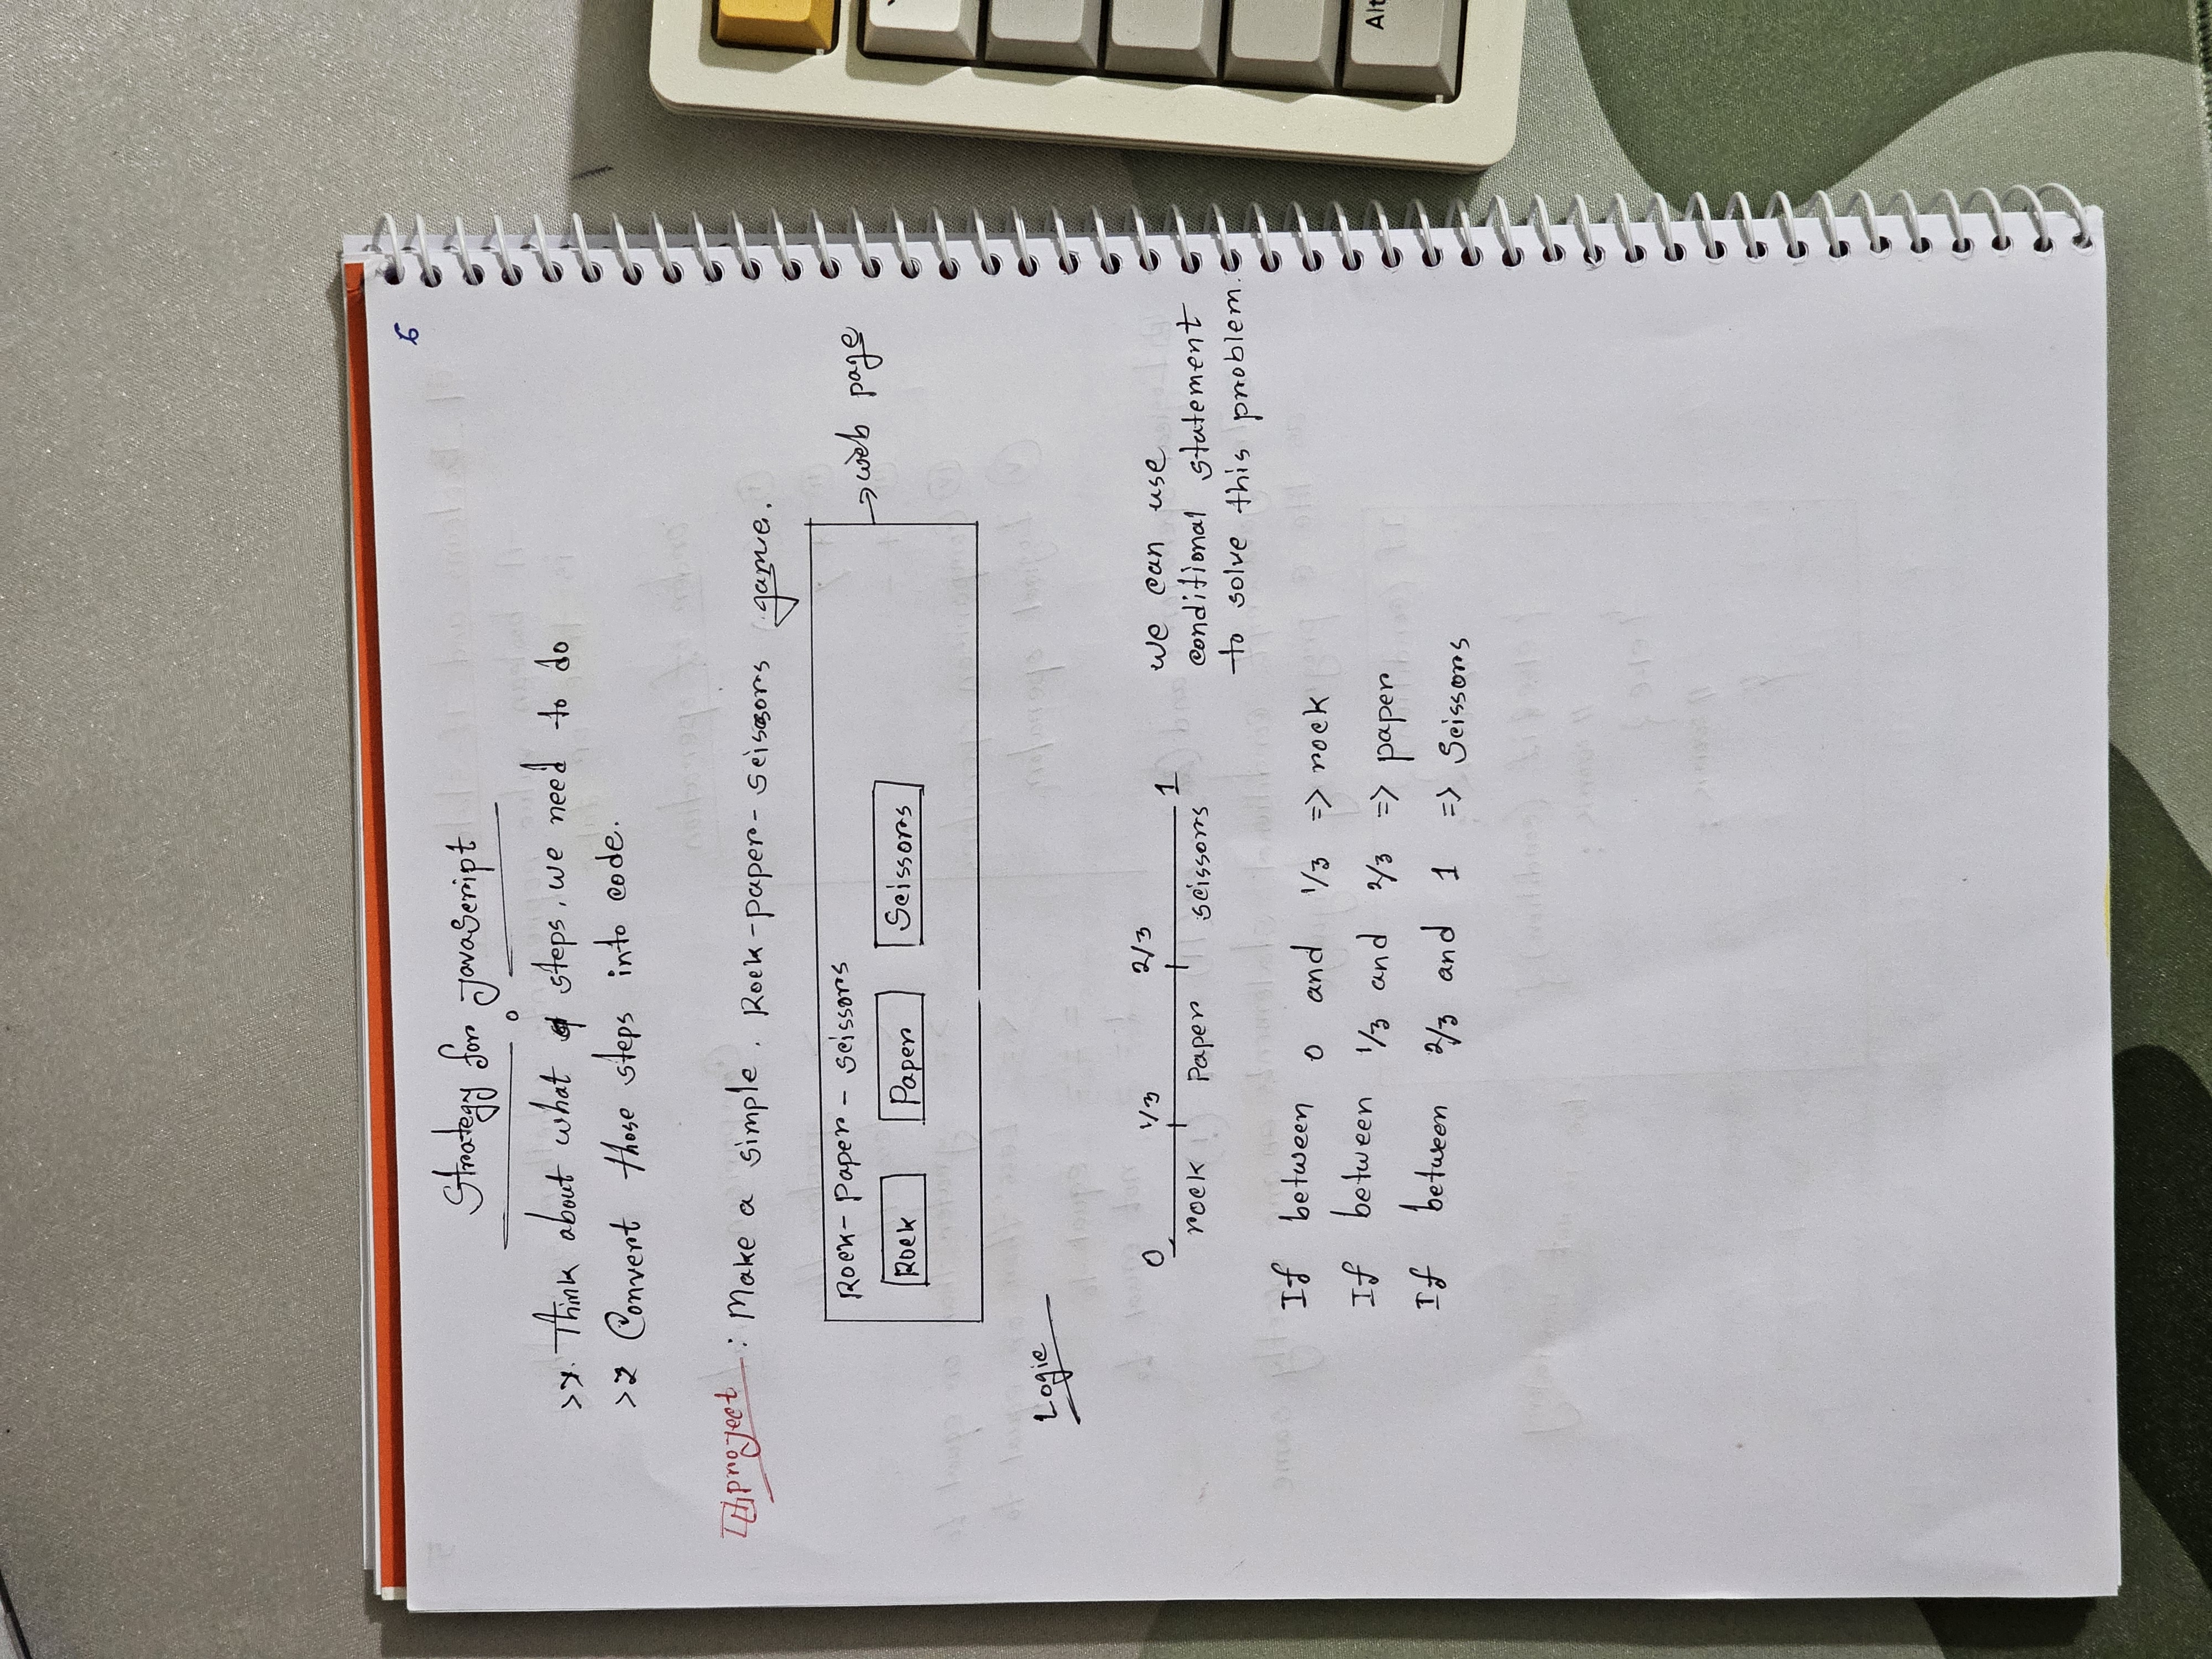 6
Strategy for JavaScript
>1. Think about what steps, we need to do
>2 Convert those steps into code.
project : Make a simple. Rock-paper-scissors game.
Rock-Paper-scissors
Rock Paper Scissors
→ web page
Logic
0 1/3 2/3 1
rock Paper scissors
we can use
conditional statement
to solve this problem.
If between 0 and 1/3 => rock
If between 1/3 and 2/3 => paper
If between 2/3 and 1 => Scissors
Alt